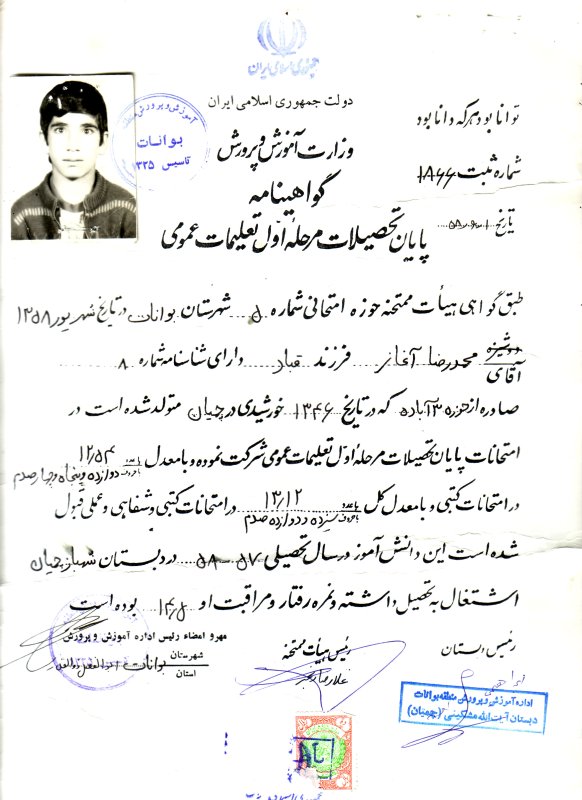 جمهوری اسلامی ایران
دولت جمهوری اسلامی ایران
توانا بود هر که دانا بود
وزارت آموزش و پرورش
شماره ثبت ۱۸۶۶
گواهینامه
تاریخ
پایان تحصیلات مرحلهٔ اول تعلیمات عمومی
آموزش و پرورش
بوانات
تاسیس ۱۳۲۵
طبق گواهی هیأت ممتحنه حوزه امتحانی شماره ۵ شهرستان بوانات در تاریخ شهریور ۱۳۵۸
دوشیزه
آقای محمدرضا فرزند قباد دارای شناسنامه شماره ۸
صادره از حوزه ۳ آباده که در تاریخ ۱۳۴۶ خورشیدی در چیان متولد شده است در
امتحانات پایان تحصیلات مرحلهٔ اول تعلیمات عمومی شرکت نموده و با معدل با عدد ۱۲/۵۴ با حروف دوازده و پنجاه و چهار صدم
در امتحانات کتبی و با معدل کل با عدد ۱۳/۱۲ با حروف سیزده و دوازده صدم در امتحانات کتبی و شفاهی و عملی قبول
شده است این دانش آموز در سال تحصیلی ۵۷-۵۸ در دبستان شهباز چیان
اشتغال به تحصیل داشته و نمره رفتار و مراقبت او ۱۴/۵ بوده است
رئیس دبستان
رئیس هیأت ممتحنه
مهر و امضاء رئیس اداره آموزش و پرورش
شهرستان بوانات
استان
اداره آموزش و پرورش منطقه بوانات
دبستان آیت الله مشکینی